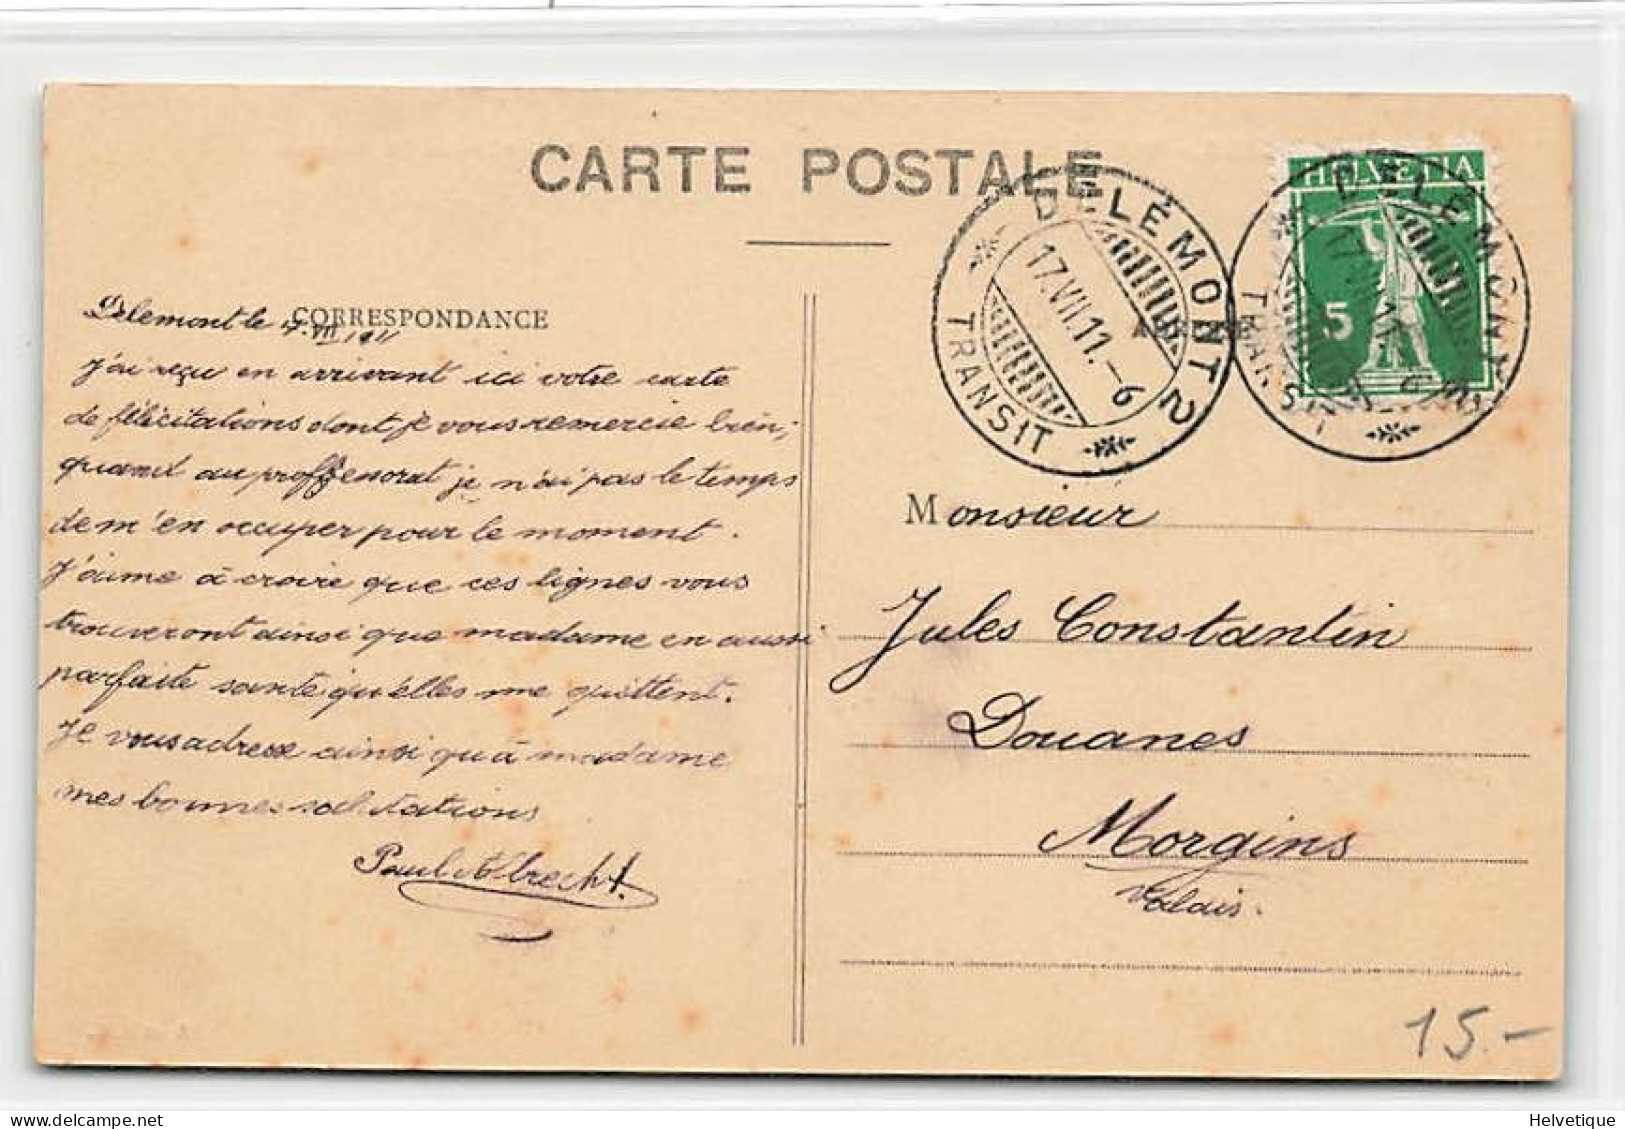 CARTE POSTALE
HELVETIA
5
DELÉMONT 2
17.VII.11.-6
TRANSIT
DELÉMONT 2
TRANSIT
CORRESPONDANCE
Delemont le VII 1911
J'ai reçu en arrivant ici votre carte
de félicitations dont je vous remercie bien,
quand au je n'ai pas le temps
de m'en occuper pour le moment.
J'aime à croire que ces lignes vous
trouveront ainsi que madame en aussi
parfaite santé qu'elles me quittent.
Je vous adresse ainsi qu'à madame
mes bonnes salutations
Paul Albrecht.
Monsieur
Jules Constantin
Douanes
Morgins
Valais.
15.-
Helvetique